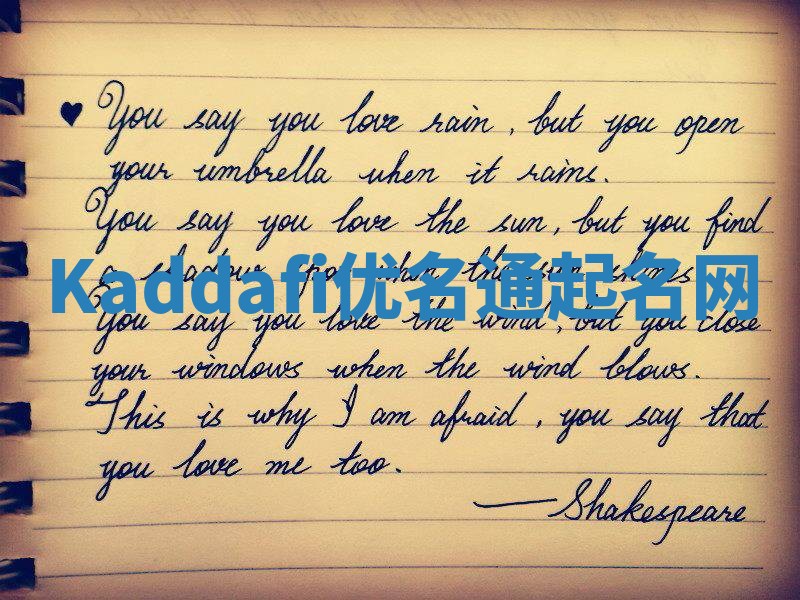 ♥ You say you love rain, but you open
your umbrella when it rains.
You say you love the sun, but you find
a shadow spot when the sun shines
Kaddafi优名通起名网
You say you love the wind, but you close
your windows when the wind blows.
This is why I am afraid, you say that
you love me too.
— Shakespeare